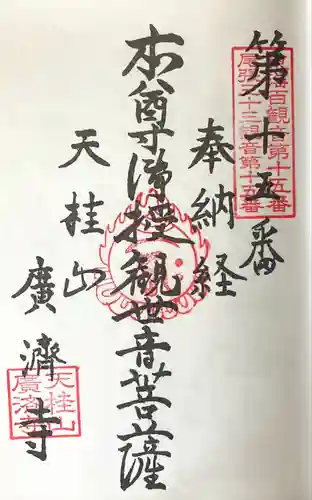 第十五番
奉納経
本尊 聖観世音菩薩
天桂山
廣濟寺
百観音第十五番
尾張三十三観音第十五番
天桂山
廣濟寺